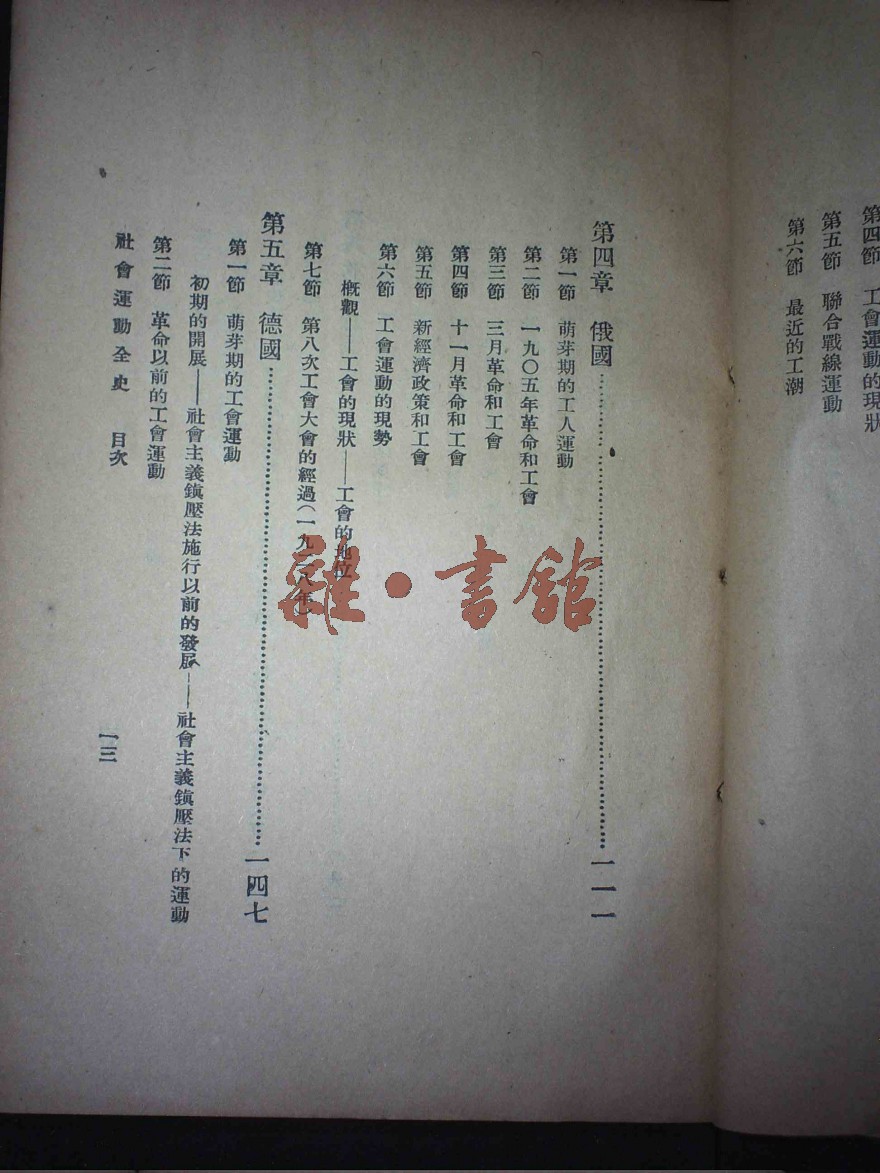 第四節　工會運動的現狀
第五節　聯合戰線運動
第六節　最近的工潮
第四章　俄國…………一一一
第一節　萌芽期的工人運動
第二節　一九〇五年革命和工會
第三節　三月革命和工會
第四節　十一月革命和工會
第五節　新經濟政策和工會
第六節　工會運動的現勢
概觀——工會的現狀——工會的地位
第七節　第八次工會大會的經過（一九二八年）
第五章　德國…………一四七
第一節　萌芽期的工會運動
初期的開展——社會主義鎮壓法施行以前的發展——社會主義鎮壓法下的運動
第二節　革命以前的工會運動
社會運動全史　目次
一三
雜·書館